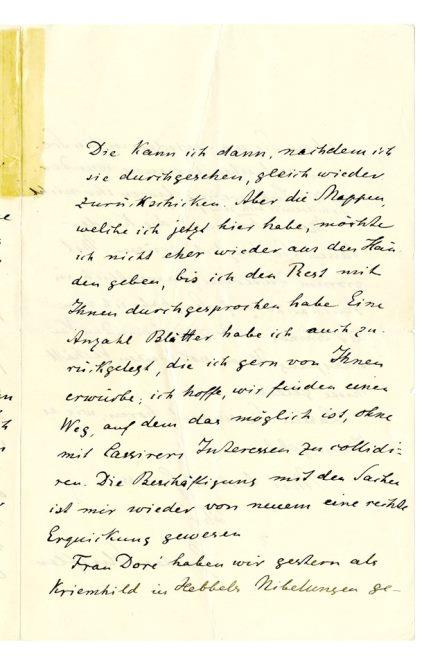 Die kann ich dann, nachdem ich
sie durchgesehen, gleich wieder
zurückschicken. Aber die Mappen,
welche ich jetzt hier habe, möchte
ich nicht eher wieder aus den Hän-
den geben, bis ich den Rest mit
Ihnen durchgesprochen habe Eine
Anzahl Blätter habe ich auch zu-
rückgelegt, die ich gern von Ihnen
erwürbe; ich hoffe, wir finden einen
Weg, auf dem das möglich ist, ohne
mit Cassirers Interessen zu collidi-
ren. Die Beschäftigung mit den Sachen
ist mir wieder von neuem eine rechte
Erquickung gewesen
Frau Doré haben wir gestern als
Kriemhild in Hebbels Nibelungen ge-